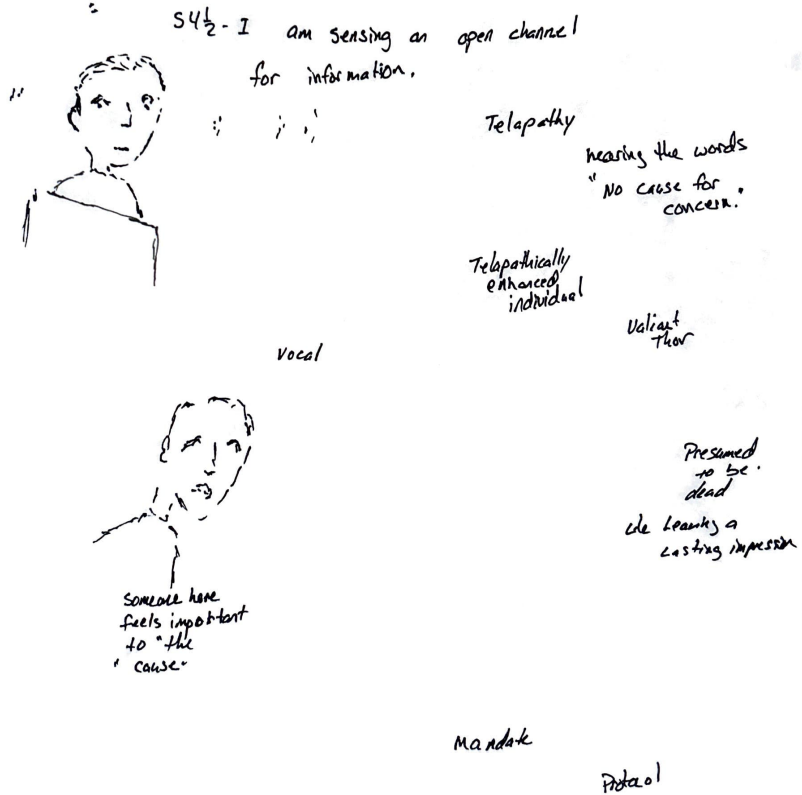 S4½ - I am sensing an open channel
for information.
Telapathy
hearing the words
"No cause for
concern.
Telapathically
enhanced
individual
Valiant
Thor
Vocal
Presumed
to be
dead
a
Lasting impression
Someone here
feels important
to "the
cause"
Mandate